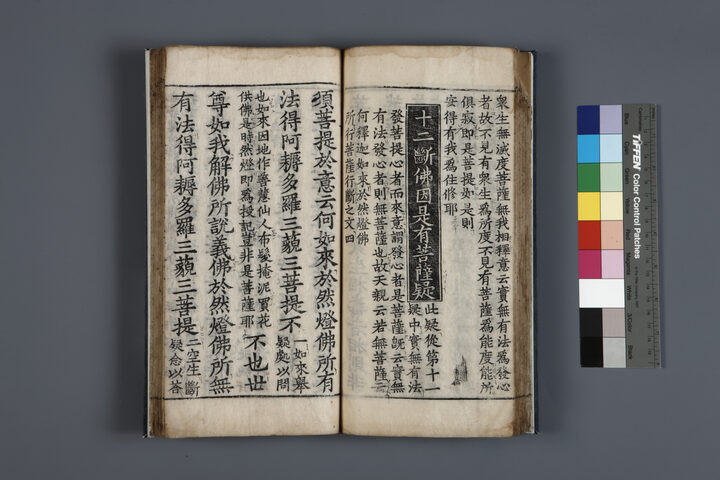 衆生無滅度菩薩無我相釋意云實無有法為發心
者故不見有衆生為所度不見有菩薩為能度能所
俱寂即是菩提如是則
安得有我為住修耶
十二斷佛因是有菩薩疑
此疑從第十一
疑中實無有法
發菩提心者而來意謂發心者是菩薩旣云實無
有法發心者則無菩薩也故天親云若無菩薩云
何釋迦如來於然燈佛
所行菩薩行斷之文四
須菩提於意云何如來於然燈佛所有
法得阿耨多羅三藐三菩提不
一如來舉
疑處以問
也如來因地作善慧仙人布髮掩泥買花
供佛是時然燈即為授記豈非是菩薩耶
不也世
尊如我解佛所說義佛於然燈佛所無
有法得阿耨多羅三藐三菩提
二空生斷
疑念以答
TIFFEN Color Control Patches
Blue
Cyan
Green
Yellow
Red
Magenta
White
3/Color
Black